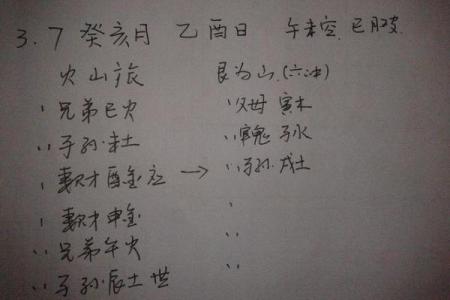 3.7 癸亥月 乙酉日 午未空 巳月破
火山旅 艮为山(六冲)
、兄弟巳火 、父母 寅木
、、子孙未土 、、官鬼 子水
、妻财酉金应 → 、、子孙 戌土
、妻财申金 、
、、兄弟午火 、、
、、子孙辰土 世 、、